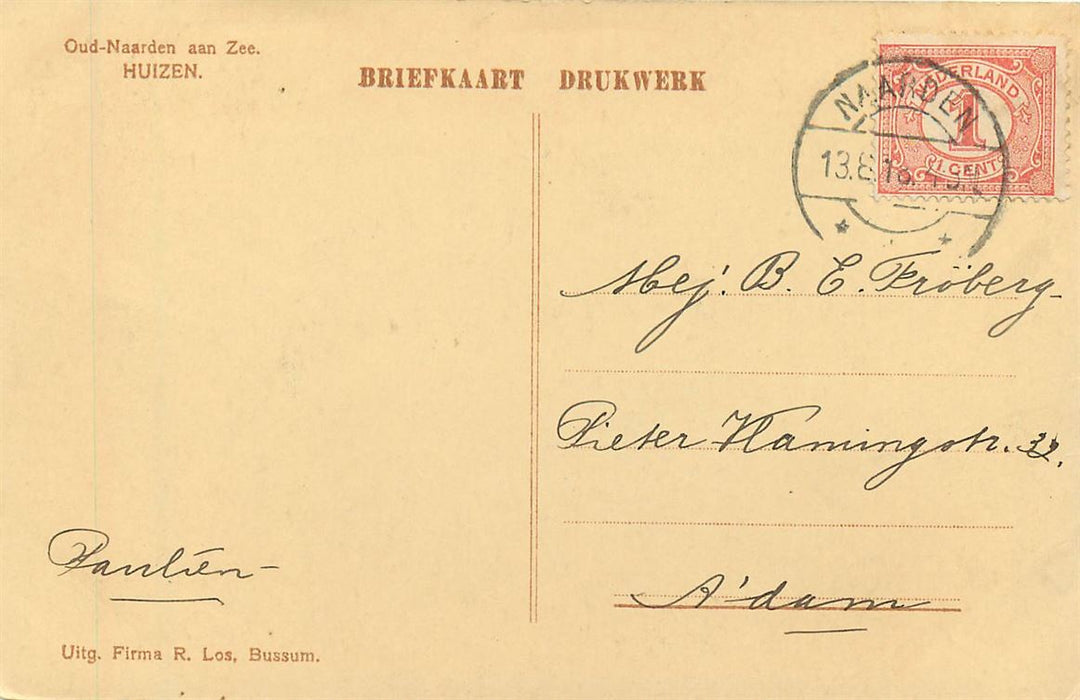 Oud-Naarden aan Zee.
HUIZEN.
BRIEFKAART DRUKWERK
NEDERLAND
1
1 CENT
NAARDEN
Mej. B. E. Fröberg
Pieter
A'dam
Paulien
Uitg. Firma R. Los, Bussum.